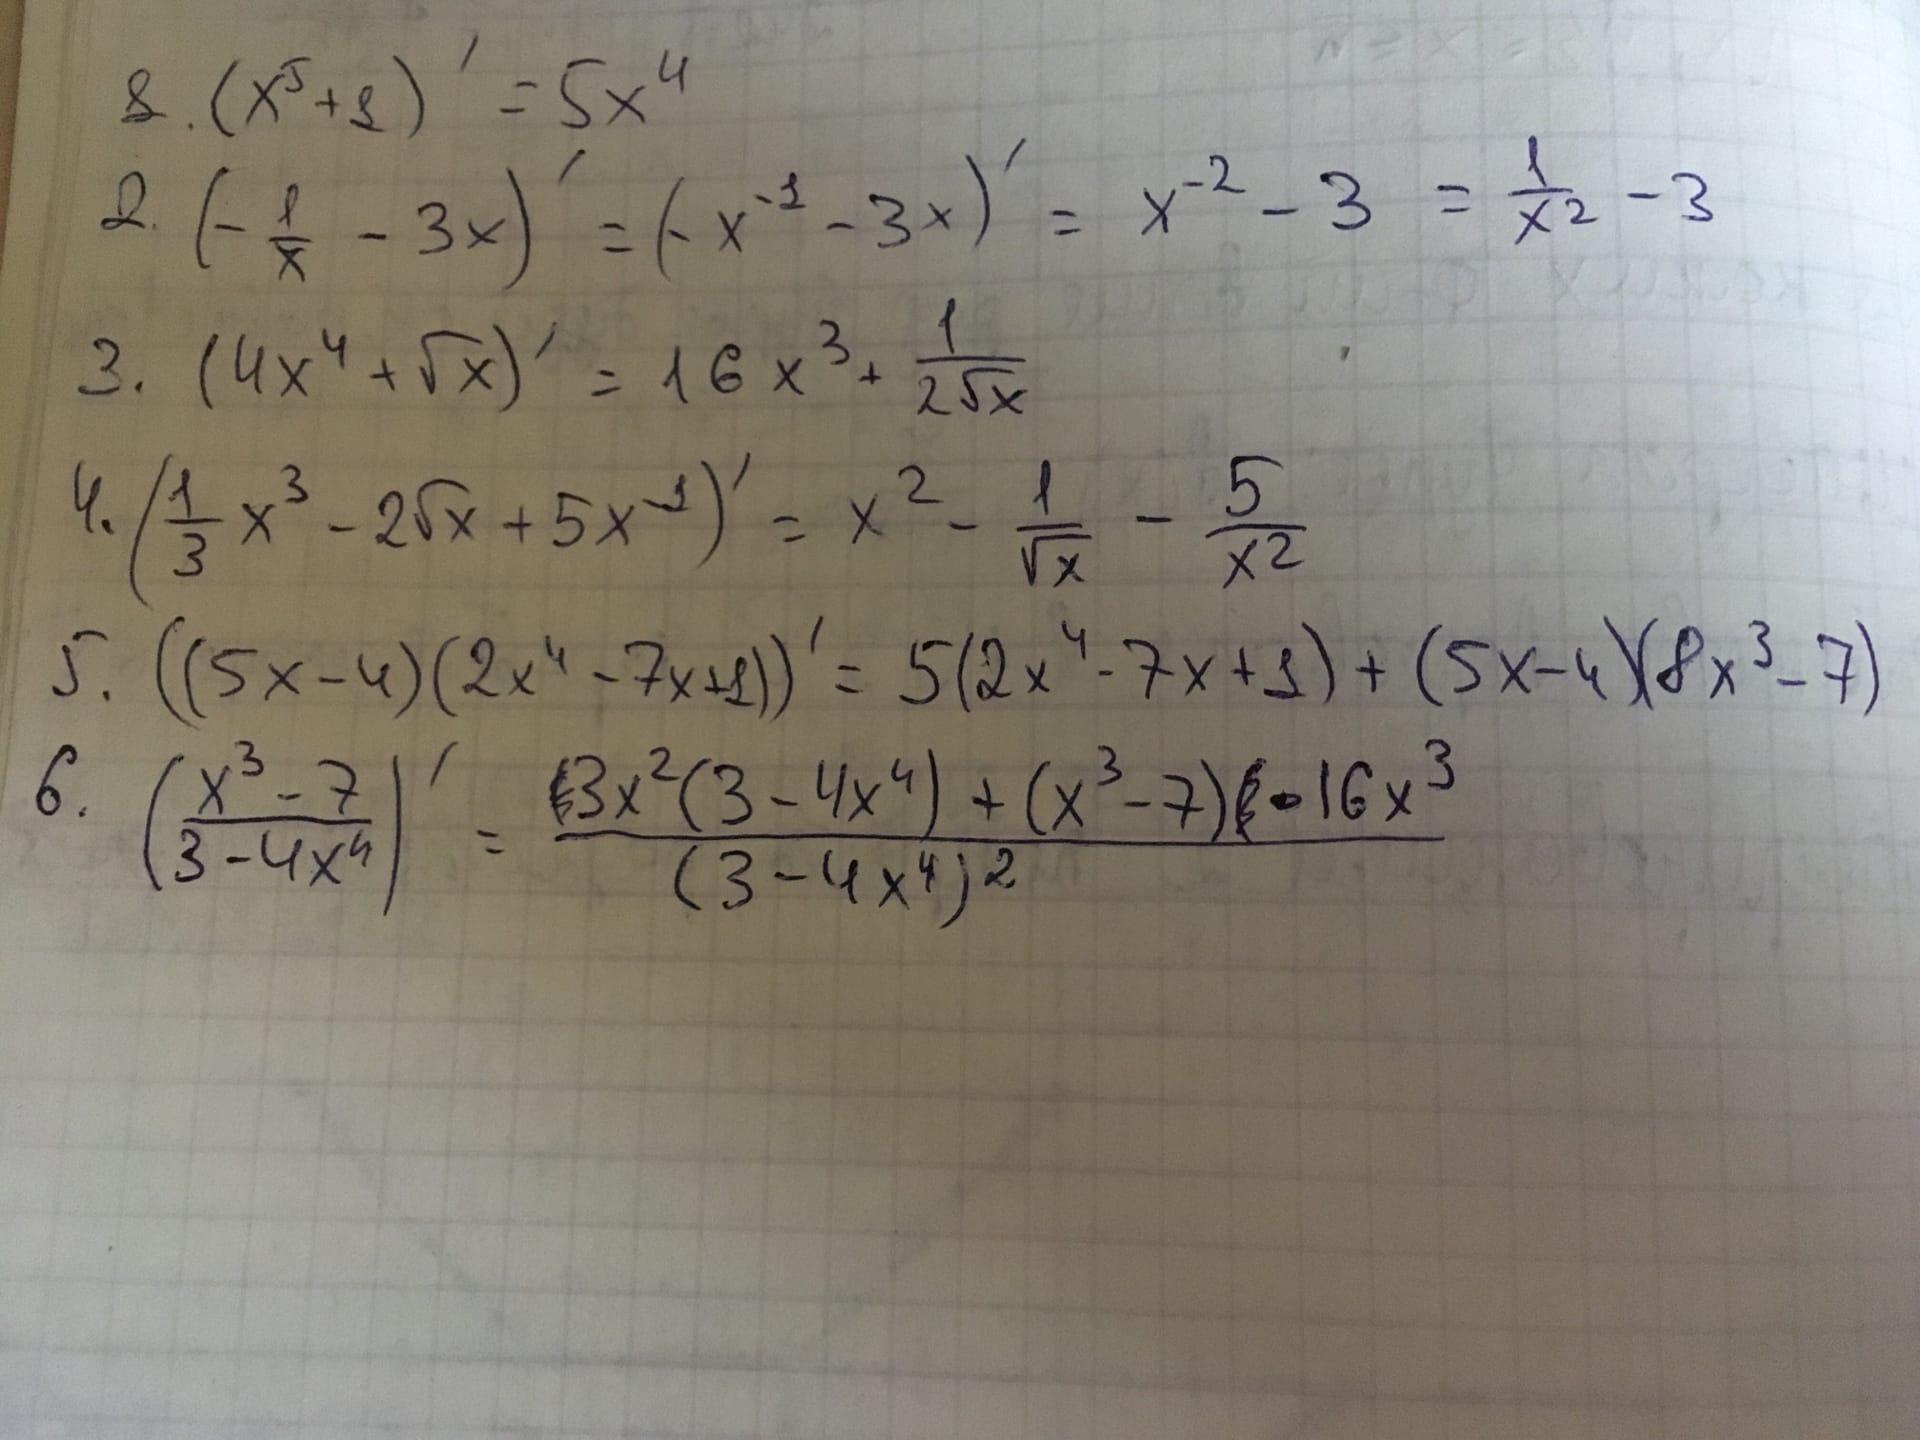 1. (x⁵+1)' = 5x⁴
2. (-1/x - 3x)' = (-x⁻¹ - 3x)' = x⁻² - 3 = 1/x² - 3
3. (4x⁴ + √x)' = 16x³ + 1/(2√x)
4. (1/3 x³ - 2√x + 5x⁻¹)' = x² - 1/√x - 5/x²
5. ((5x-4)(2x⁴-7x+1))' = 5(2x⁴-7x+1) + (5x-4)(8x³-7)
6. ((x³-7)/(3-4x⁴))' = (3x²(3-4x⁴) + (x³-7)·16x³)/(3-4x⁴)²